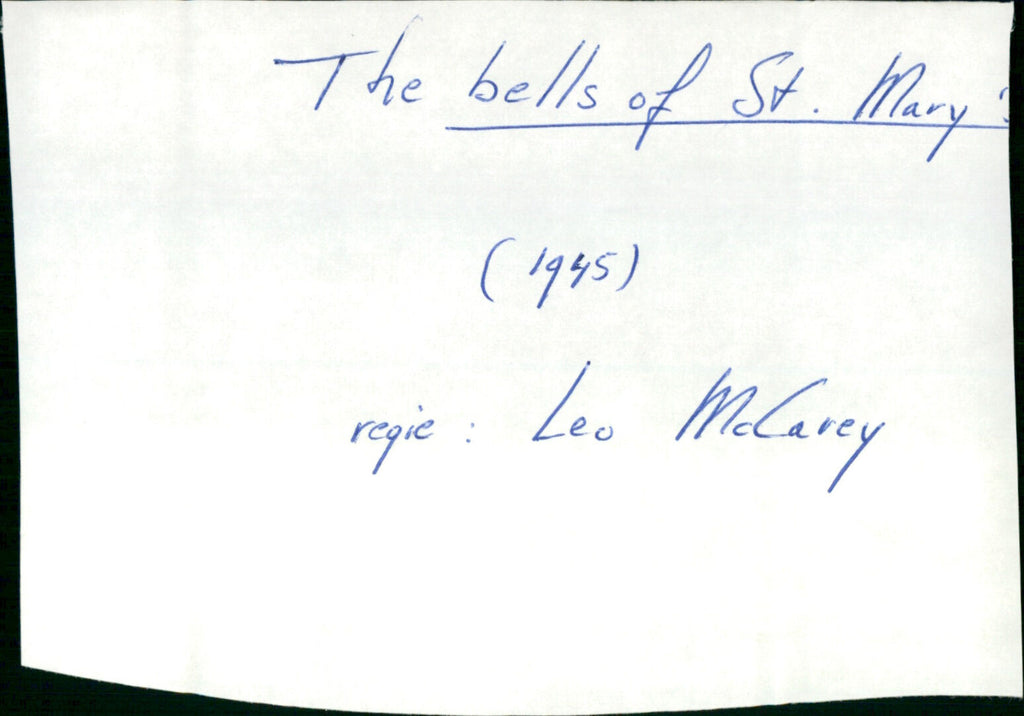 The bells of St. Mary's
(1945)
regie : Leo McCarey